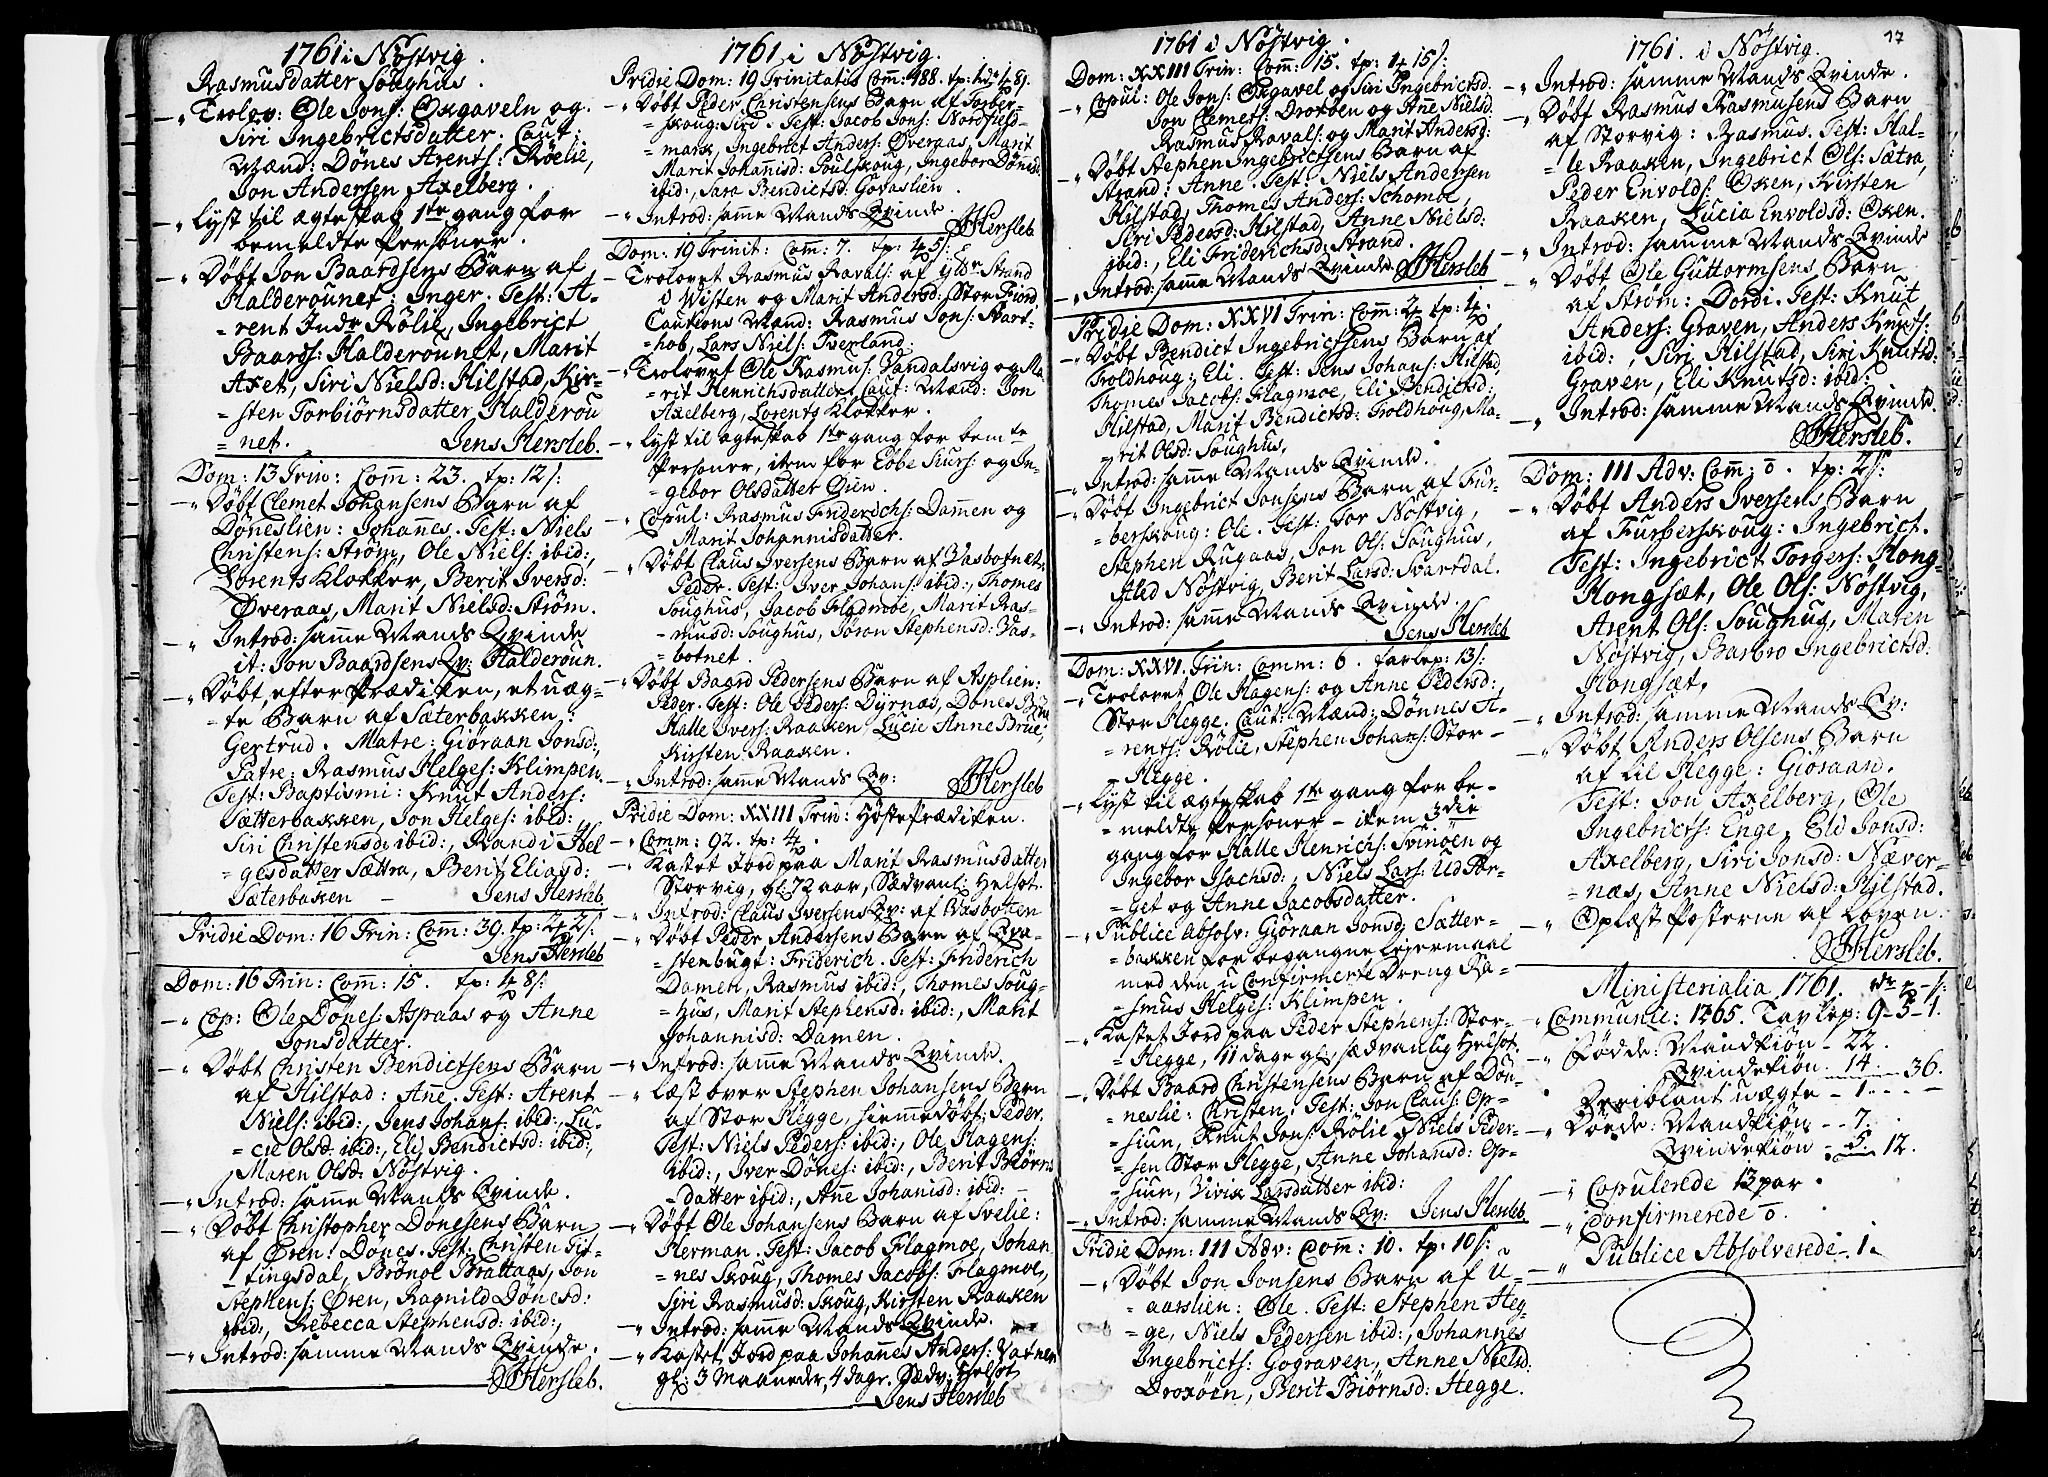 1761 i Nöstvig.
Rasmusdatter Soughus.
-„ Trolov: Ole Jons: Oxgaveln og
Siri Ingebrictsdatter. Caut:
Mænd: Dönes Arents: Röelie,
Jon Andersen Axelberg.
-„ Lyst til ægteskab 1te gang for
bemeldte Personer.
-„ Döbt Jon Baardsens Barn af
Halderounet: Inger. Test: A-
=rent Indr Rölie, Ingebrict
Baards: Halderounet, Marit
Axet, Siri Nielsd: Hilstad, Kir-
=sten Torbiörnsdatter Halderou
=net. Jens Hersleb.
Dom: 13 Trin: Com: 23. tp: 12 s:
-„ Döbt Clemet Johansens Barn af
Döneslien: Johannes. Test: Niels
Christens: Ström, Ole Niels: ibid:,
Lorents Klokker, Berit Iversd:
Överaas, Marit Nielsd: Ström.
-„ Introd: samme Mands Qvinde
it: Jon Baardsens Qv: Halderoun.
-„ Döbt, efter Prædiken, et uæg-
=te Barn af Sæterbakken,:
Gertrud. Matre: Giöraan Jonsd:,
Patre: Rasmus Helges: Klimpen.
Test: Baptismi: Knut Anders:
Sætterbakken, Jon Helges: ibid:,
Siri Christensd: ibid:, Randi Hel
=gesdatter Sættra, Berit Eliasd:
Sæterbakken - Jens Hersleb
Pridie Dom: 16 Trin: Com: 39. tp: 4 2 s:
Jens Hersleb
Dom: 16 Trin: Com: 15. tp: 4 8 s:
-„ Cop: Ole Dönes: Aspaas og Anne
Jonsdatter.
-„ Döbt Christen Bendictsens Barn
af Hilstad: Anne. Test: Arent
Niels: ibid:, Jens Johans: ibid:, Lu-
=cie Olsd: ibid:, Eli Bendictsd: ibid:,
Maren Olsd: Nöstvig.
-„ Introd: samme Mands Qvinde.
-„ Döbt Christopher Dönesens Barn
af Ören: Dönes. Test: Christen Tit-
=tingsdal, Brönol Brattaas, Jon
Stephens: Ören, Ragnild Dönesd:
ibid:, Rebecca Stephensd: ibid:,
-„ Introd: samme Mands Qvinde.
JHersleb.
1761 i Nöstvig.
Pridie Dom: 19 Trinitatis Com: 188. tp:
-„ Döbt Peder Christensens Barn af Forber-
=skoug: Siri. Test: Jacob Jons: Nordfield-
=mark, Ingebrict Anders: Överaas, Marit
Marit Johannisd: Poulskoug, Ingebor Dönesd:
ibid:, Sara Bendictsd: Govaslien.
-„ Introd: samme Mands Qvinde.
JHersleb
Dom: 19 Trinit: Com: 7. tp: 4 5 s:
- Trolovet Rasmus Ravals: af ytter Strand
i Visten og Marit Andersd: Stor Fiord
Cautions Mænd: Rasmus Jons: Svart-
=hob, Lars Niels: Tverland:
-„ Trolovet Ole Rasmus: Vandalsvig og Ma
=rit Henrichsdatter Caut: Mænd: Jon
Axelberg, Lorents Klokker.
-„ Lyst til ægteskab 1te gang for bemte
Personer, item for Eöbe Siurs: og In-
=gebor Olsdatter Öien.
-„ Copul: Rasmus Friderichs: Dammen og
Marit Johannisdatter.
-„ Döbt Claus Iversens Barn af Vasbotnet:
Peder. Test: Iver Johans: ibid:, Thomes
Soughus, Jacob Flagmoe, Marit Ras-
=musd: Soughus, Jören Stephensd: Vas-
=botnet.
-„ Döbt Baard Pedersens Barn af Asplien:
Peder. Test: Ole Peders: Dyrnæs, Dönes Brue
Halle Ivers: Raaken, Lucie Anne Brue,
Kirsten Raaken.
-„ Introd: samme Mands Qv: JHersleb
Pridie Dom: XXIII Trin: Höste Prædiken.
-„ Comm: 92. tp: 4.
-„ Kastet Jord paa Marit Rasmusdatter
Storvig, gl: 72 aar, Sædvanl: Helsot.
-„ Introd: Claus Iversens Qv: af Vasbotten
-„ Döbt Peder Andersens Barn af
=stenbugt: Friderich. Test: Friderich
Damen, Rasmus ibid:, Thomes Soug-
=hus, Marit Stephensd: ibid:, Marit
Johannisd: Damen.
-„ Introd: samme Mands Qvinde.
-„ Læst over Stephen Johansens Barn
af Stor Hegge, hiemmedöbt: Peder.
Test: Niels Peders: ibid:, Ole Hagens:
ibid:, Iver Dönes: ibid:, Berit Biörns
=datter ibid:, Anne Johanisd: ibid:
-„ Döbt Ole Johansens Barn af Svelie:
Herman. Test: Jacob Flagmoe, Johan
=nes Skoug, Thomes Jacobs: Flagmoe,
Siri Rasmusd: Skoug, Kirsten Raaken
-„ Introd: samme Mands Qvinde.
-„ Kastet Jord paa Johannes Anders: Vatnen
gl: 3 Maaneder, 4 dage. Sædv: Helsot
Jens Hersleb
1761 i Nöstvig.
Dom: XXIII Trin: Comm: 15. tp: 4 15 s:
-„ Copul: Ole Jons: Oxgavel og Siri Ingebrictsd:
Jon Clemets: Droxöen og Ane Nielsd:
Rasmus Ravals: og Marit Andersd:
-„ Döbt Stephen Ingebrictsens Barn af
Strand: Anne. Test: Niels Andersen
Hilstad, Thomes Anders: Schomoe,
Siri Pedersd: Hilstad, Anne Nielsd:
ibid:, Eli Friderichsd: Strand.
-„ Introd: samme Mands Qvinde JHersleb
Pridie Dom: XXVI Trin: Com: 24 tp: 4.
-„ Döbt Bendict Ingebrictsens Barn af
Troldhoug: Eli. Test: Jens Johans: Hilstad,
Thomes Jacobs: Flagmoe, Eli Bendictsd:
Hilstad, Marit Bendictsd: Troldhoug, Ma-
=rit Olsd: Soughus,
-„ Introd: samme Mands Qvinde.
-„ Döbt Ingebrict Jonsens Barn af Fur-
=berskoug: Ole. Test: Tor Nöstvig,
Stephen Rugaas, Jon Ols: Soughus,
Abel Nöstvig, Berit Larsd: Svartdal.
-„ Introd: samme Mands Qvinde.
Jens Hersleb
Dom: XXVI. Trin: Comm: 6. tavlep: 13 s:
-„ Trolovet Ole Hagens: og Anne Pedersd:
Stor Hegge. Caut: Mænd: Dönnes A-
=rents: Rölie, Stephen Johans: Stor-
=Hegge.
-„ Lyst til ægteskab 1te gang for be-
=meldte Personer - item 3die
gang for Halle Henrichs: Svinöen og
Ingebor Isachsd:, Niels Lars: Udtor-
=get og Anne Jacobsdatter.
-„ Publice Absolv: Giöraan Jonsd: Sætter-
=bakken for begangne Leiermaal
med den u Confirmerte Dreng Ra-
=smus Helges: Klimpen.
-„ Kastet Jord paa Peder Stephens: Stor-
=Hegge, 11 dage gl: sædvanlig Helsot.
-„ Döbt Baard Christensens Barn af Dön-
=neslie: Christen. Test: Jon Claus: Op-
=siun, Knut Jons: Rölie, Niels Peder-
=sen Stor Hegge, Anne Johansd: Op-
=siun, Zivix Larsdatter ibid:
-„ Introd: samme Mands Qv: Jens Hersleb
Pridie Dom: III Adv: Com: 10. tp: 10 s:
-„ Döbt Jon Jonsens Barn af U-
=aarslien: Ole. Test: Stephen Heg-
=ge, Niels Pedersen ibid:, Johannes
Ingebricts: Gograven, Anne Nielsd:
Droxöen, Berit Biörnsd: Hegge.
17
1761. i Nöstvig.
-„ Introd: samme Mands Qvinde.
-„ Döbt Rasmus Rasmusens Barn
af Storvig: Rasmus. Test: Hal-
=le Raaken, Ingebrict Ols: Sætra,
Peder Envolds: Oxen, Kirsten
Raaken, Lucia Envoldsd: Oxen.
-„ Introd: samme Mands Qvinde
-„ Döbt Ole Guttormsens Barn
af Ström: Dordi. Test: Knut
Anders: Graven, Anders Knuts:
ibid:, Siri Hilstad, Siri Knutsd:
Graven, Eli Knutsd: ibid:
-„ Introd: samme Mands Qvinde.
JHersleb.
Dom: III Adv: Com: 0. tp: 2 s:
-„ Döbt Anders Iversens Barn
af Furberskoug: Ingebrict.
Test: Ingebrict Torgers: Hong-
Hongsæt, Ole Ols: Nöstvig,
Arent Ols: Soughug, Maren
Nöstvig, Barbro Ingebrictsd:
Hongsæt,
-„ Introd: samme Mands Qv:
-„ Döbt Anders Olsens Barn
af lil Hegge: Gioraan.
Test: Jon Axelberg, Ole
Ingebricts: Enge, Eli Jonsd:
Axelberg, Siri Jonsd: Næver-
=næs, Anne Nielsd: Hilstad.
-„ Oplæst Posterne af Loven.
JHersleb.
Ministerialia 1761.
-„ Communic: 1265. Tavlep: 9-3-1.
-„ Födde: Mandkiön - 22.
Qvindekiön 14. 36.
Deriblant uægte - 1.
-„ Döede: Mandkiön - 7.
Qvindekiön - 5. 12.
-„ Copulerede 13 par.
-„ Confirmerede 0.
-„ Publice Absolverede 1.